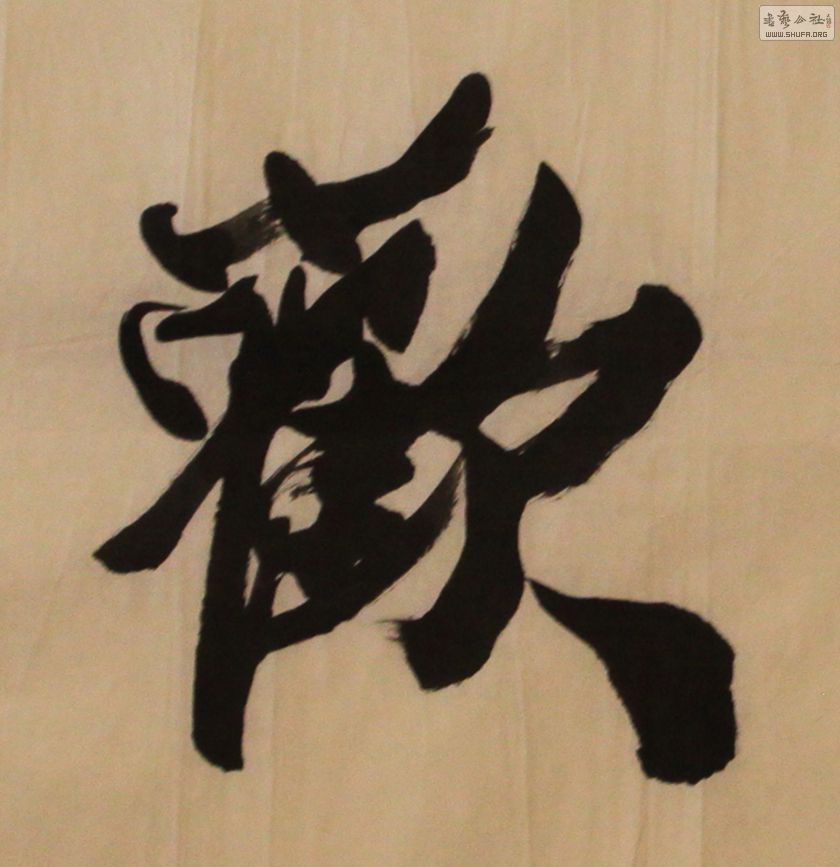 歡
书艺公社
WWW.SHUFA.ORG